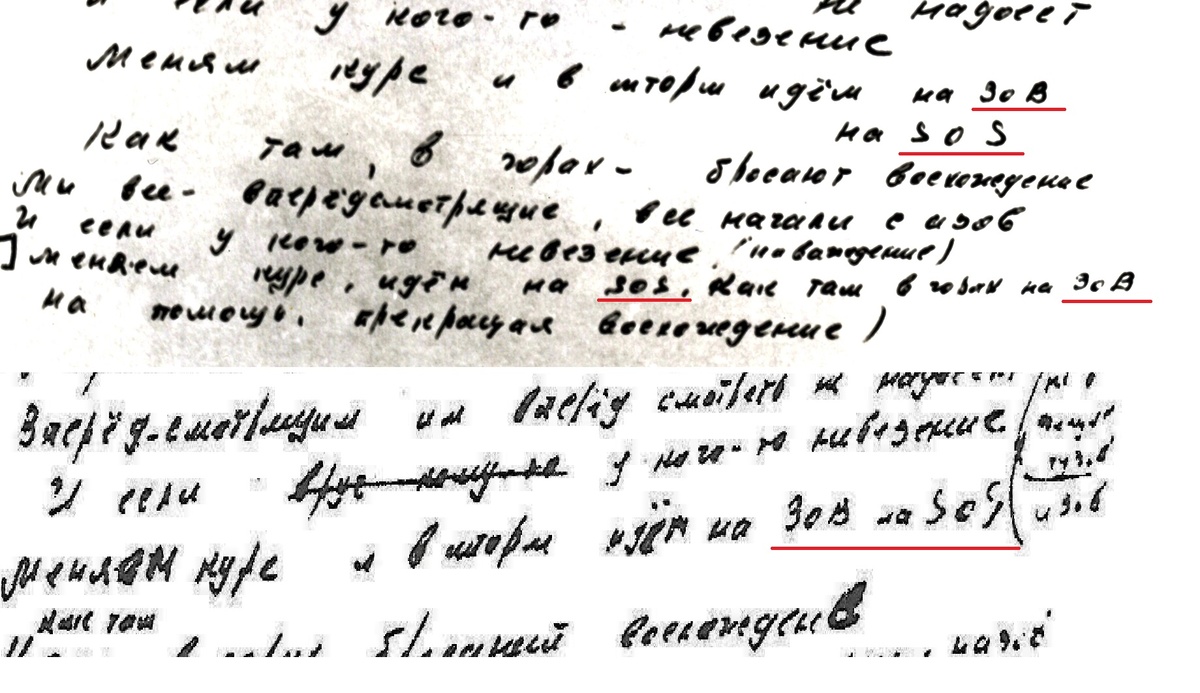 И если у кого-то - невезение
не надоест
Меняем курс и в шторм идём на зов
на SOS
Как там, в горах - бросают восхождение
Мы все - вперёдсмотрящие, все начали с азов
И если у кого-то невезение (наваждение)
меняем курс, идём на SOS, как там в горах на зов
на помощь, прекращая восхождение)
Вперёд-смотрящим им вперёд смотреть не надоест
И если вдруг кому-то у кого-то невезение
Меняем курс и в шторм идём на зов на SOS
азов
как там
бросают восхожден